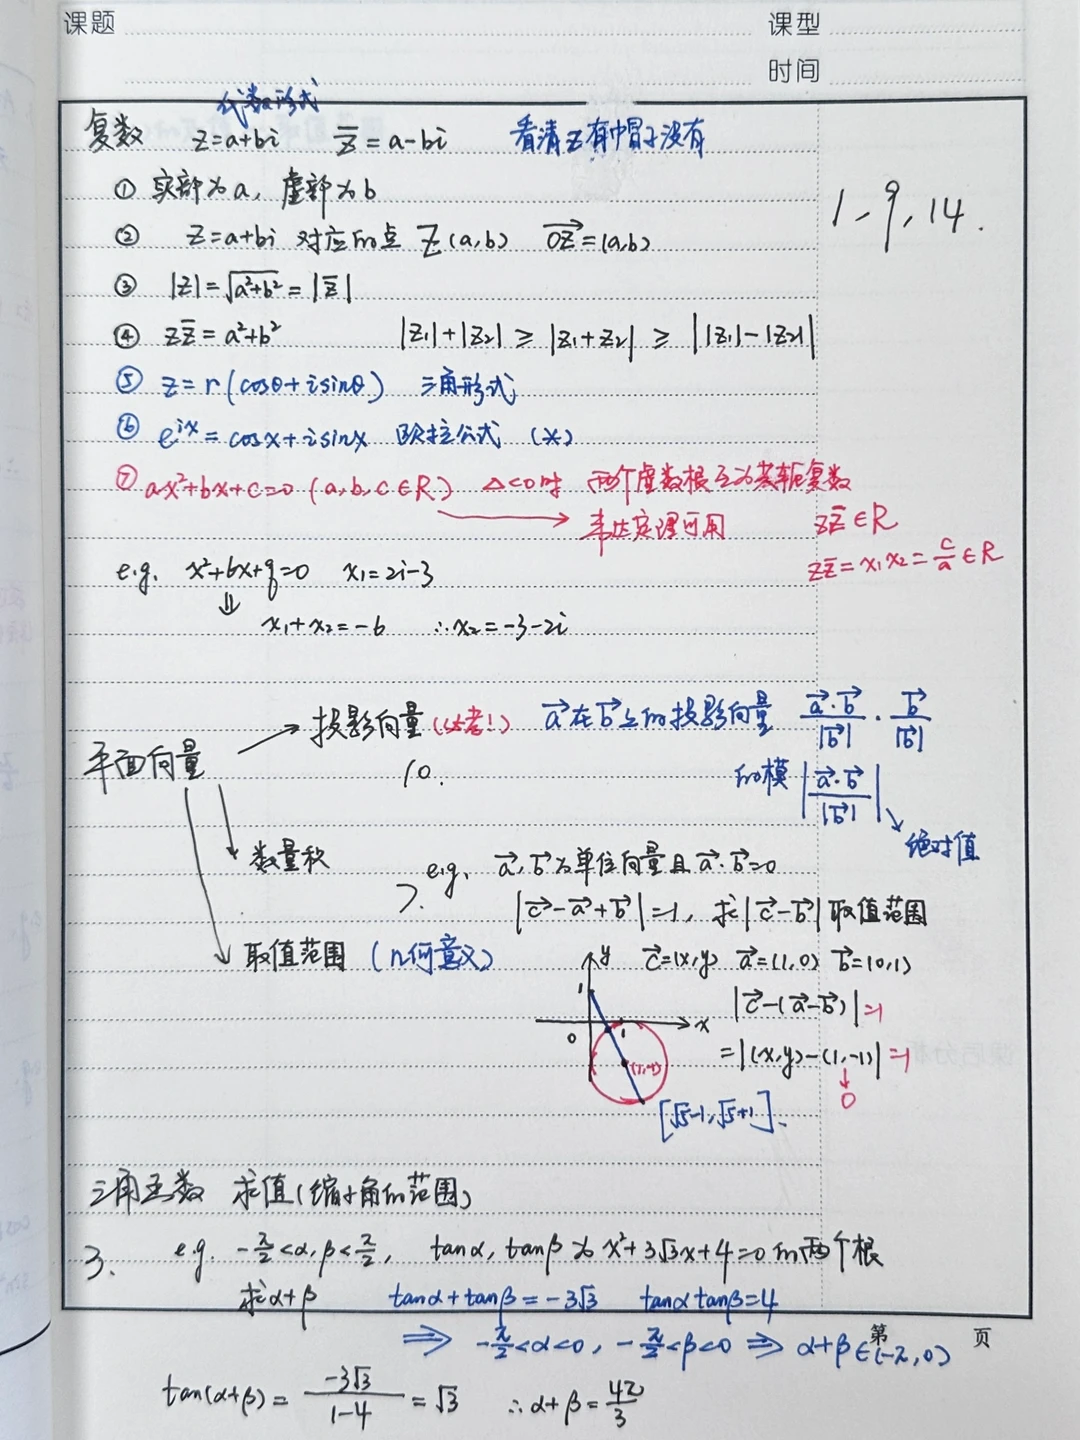 课题 课型
时间
代数形式
复数 z=a+bi z̅=a-bi 看清z有帽子没有
① 实部为a，虚部为b
1-9, 14.
② z=a+bi 对应的点 Z(a,b) OZ⃗=(a,b)
③ |z|=√(a²+b²)=|z̅|
④ zz̅=a²+b² |z₁|+|z₂| ≥ |z₁+z₂| ≥ ||z₁|-|z₂||
⑤ z=r(cosθ+isinθ) 三角形式
⑥ e^{ix}=cosx+isinx 欧拉公式 (*)
⑦ ax²+bx+c=0 (a,b,c∈R) Δ<0时 两个虚数根互为共轭复数
韦达定理可用 zz̅∈R
zz̅=x₁x₂=c/a∈R
e.g. x²+6x+q=0 x₁=2i-3
⇓
x₁+x₂=-6 ∴x₂=-3-2i
平面向量 → 投影向量(必考!) a⃗在b⃗上的投影向量 (a⃗·b⃗)/|b⃗| · b⃗/|b⃗|
10. 的模 |(a⃗·b⃗)/|b⃗||
绝对值
数量积
7. e.g. a⃗,b⃗为单位向量且a⃗·b⃗=0
|c⃗-a⃗+b⃗|=1，求|c⃗-b⃗|取值范围
取值范围 (几何意义)
c⃗=(x,y) a⃗=(1,0) b⃗=(0,1)
y
1
0 1 x
(1,-1)
|c⃗-(a⃗-b⃗)|=1
=|(x,y)-(1,-1)|=1
↓
0
[√5-1,√5+1].
三角函数 求值(缩小角的范围)
3. e.g. -π/2<α,β<π/2, tanα,tanβ为x²+3√3x+4=0的两个根
求α+β tanα+tanβ=-3√3 tanαtanβ=4
⇒ -π/2<α<0, -π/2<β<0 ⇒ α+β∈(-π,0)
第 页
tan(α+β)=(-3√3)/(1-4)=√3 ∴α+β=4π/3